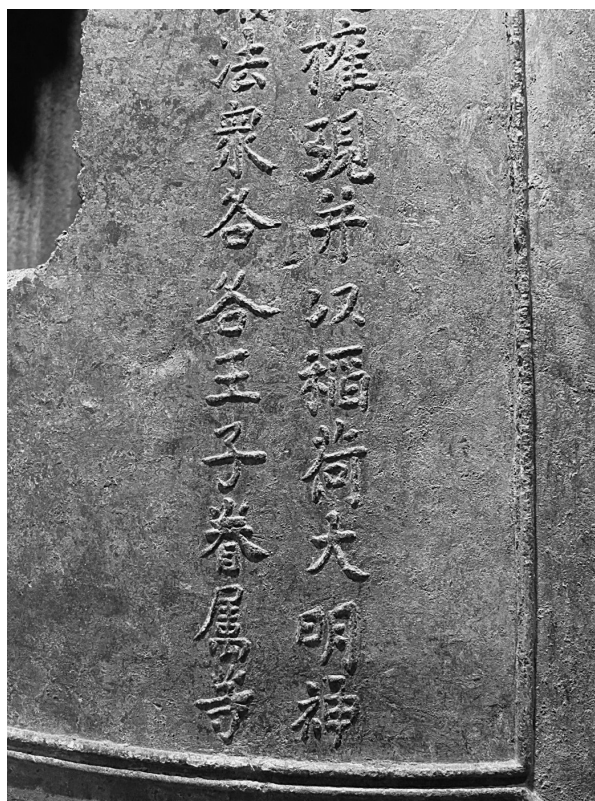 權現并以稲荷大明神
法衆各各王子眷属等